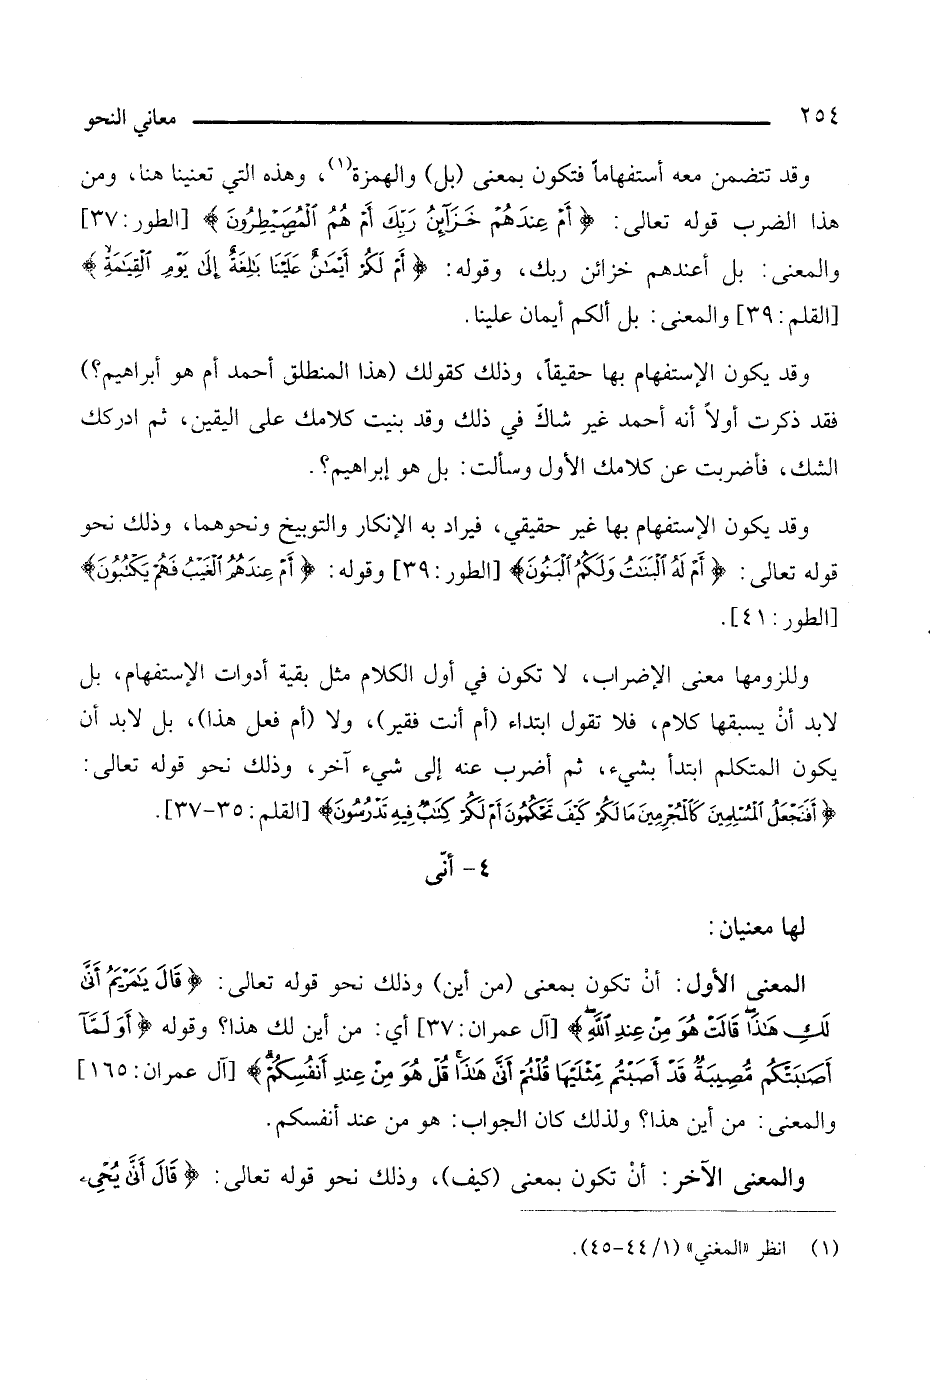 ٢٥٤ معاني النحو
وقد تتضمن معه أستفهاماً فتكون بمعنى (بل) والهمزة(١)، وهذه التي تعنينا هنا، ومن
هذا الضرب قوله تعالى: ﴿ أَمْ عِندَهُمْ خَزَآئِنُ رَبِّكَ أَمْ هُمُ ٱلْمُصَۣيْطِرُونَ ﴾ [الطور:٣٧]
والمعنى: بل أعندهم خزائن ربك، وقوله: ﴿ أَمْ لَكُمْ أَيْمَٰنٌ عَلَيْنَا بَٰلِغَةٌ إِلَىٰ يَوْمِ ٱلْقِيَٰمَةِۙ ﴾
[القلم:٣٩] والمعنى: بل ألكم أيمان علينا.
وقد يكون الإستفهام بها حقيقاً، وذلك كقولك (هذا المنطلق أحمد أم هو أبراهيم؟)
فقد ذكرت أولاً أنه أحمد غير شاكّ في ذلك وقد بنيت كلامك على اليقين، ثم ادركك
الشك، فأضربت عن كلامك الأول وسألت: بل هو إبراهيم؟.
وقد يكون الإستفهام بها غير حقيقي، فيراد به الإنكار والتوبيخ ونحوهما، وذلك نحو
قوله تعالى: ﴿ أَمْ لَهُ ٱلْبَنَٰتُ وَلَكُمُ ٱلْبَنُونَ﴾ [الطور:٣٩] وقوله: ﴿ أَمْ عِندَهُمُ ٱلْغَيْبُ فَهُمْ يَكْتُبُونَ﴾
[الطور:٤١].
وللزومها معنى الإضراب، لا تكون في أول الكلام مثل بقية أدوات الإستفهام، بل
لابد أنْ يسبقها كلام، فلا تقول ابتداء (أم أنت فقير)، ولا (أم فعل هذا)، بل لابد أن
يكون المتكلم ابتدأ بشيء، ثم أضرب عنه إلى شيء آخر، وذلك نحو قوله تعالى:
﴿ أَفَنَجْعَلُ ٱلْمُسْلِمِينَ كَٱلْمُجْرِمِينَ مَا لَكُمْ كَيْفَ تَحْكُمُونَ أَمْ لَكُمْ كِتَٰبٌ فِيهِ تَدْرُسُونَ﴾ [القلم:٣٥-٣٧].
٤- أنّى
لها معنيان:
المعنى الأول: أنْ تكون بمعنى (من أين) وذلك نحو قوله تعالى: ﴿ قَالَ يَٰمَرْيَمُ أَنَّىٰ
لَكِ هَٰذَاۖ قَالَتْ هُوَ مِنْ عِندِ ٱللَّهِۖ﴾ [آل عمران:٣٧] أي: من أين لك هذا؟ وقوله ﴿ أَوَلَمَّآ
أَصَٰبَتْكُم مُّصِيبَةٌ قَدْ أَصَبْتُم مِّثْلَيْهَا قُلْتُمْ أَنَّىٰ هَٰذَاۖ قُلْ هُوَ مِنْ عِندِ أَنفُسِكُمْۗ ﴾ [آل عمران:١٦٥]
والمعنى: من أين هذا؟ ولذلك كان الجواب: هو من عند أنفسكم.
والمعنى الآخر: أنْ تكون بمعنى (كيف)، وذلك نحو قوله تعالى: ﴿ قَالَ أَنَّىٰ يُحْيِۦ
(١) انظر «المغني» (١/ ٤٤-٤٥).